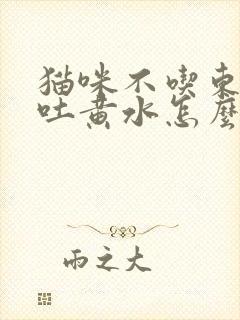 猫咪不喫東
吐黄水怎麼
雨之大